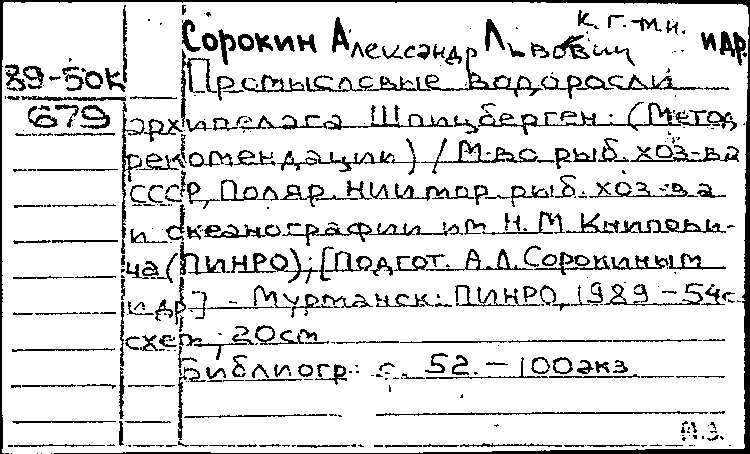 к. г.-м.н.
Сорокин Александр Львович и др.
89-50к Промысловые водоросли
679 архипелага Шпицберген: (Метод.
рекомендации) / М-во рыб. хоз-ва
СССР, Поляр. НИИ мор. рыб. хоз-ва
и океанографии им. Н.М. Книпови-
ча (ПИНРО); [Подгот. А.Л. Сорокиным
и др.] - Мурманск: ПИНРО, 1989 - 54с.
схем.; 20см
Библиогр.: с. 52. - 100экз.